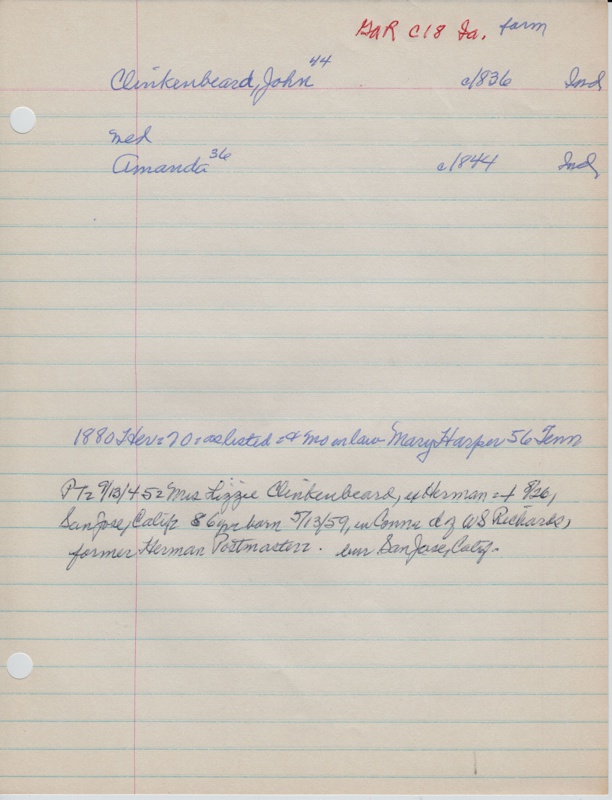 GAR C18 Ia. farm
Clinkenbeard, John 44 c/836 Ind
med
Amanda 36 c/844 Ind
1880 Her = 70 = as listed = & mo in law Mary Harper 56 Tenn
PT = 9/13/45 = Mrs Lizzie Clinkenbeard, ex Herman = + 8/26,
San Jose, Calif = 86 yr born 5/13/59, in Conn = d of WS Richards,
former Herman Postmaster. bur San Jose, Calif.